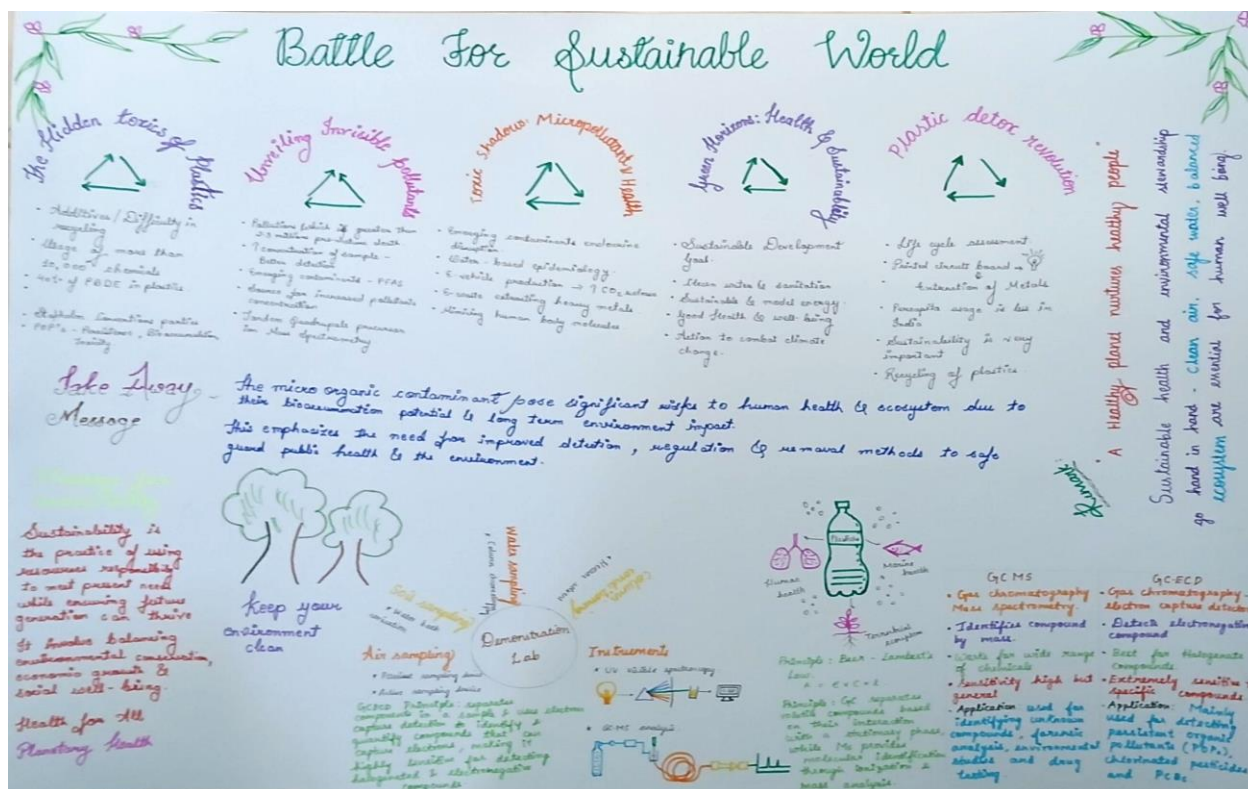 Battle For Sustainable World
The Hidden toxics of Plastics
Additives / Difficulty in
recycling
Usage of more than
10,000 chemicals
40% of PBDE in plastics
Unveiling Invisible pollutants
concentration of sample -
Emerging contaminants - PFAS
Source for increased pollutants
concentration
in Mass Spectrometry
Toxic Shadows: Micropollutant & Health
Emerging contaminants endocrine
disruption
Water-based epidemiology
E-vehicle production → ↑ CO2
E-waste extracting heavy metals
human body molecules
Green Horizons: Health & Sustainability
Sustainable Development
Goal.
Clean water & sanitation
Sustainable & model energy
Good Health & well-being
Action to combat climate
change.
Plastic detox revolution
Life cycle assessment
Printed circuit board →
Extraction of Metals
usage is less in
India
Sustainability is very
important
Recycling of plastics
" A Healthy planet nurtures healthy people "
Sustainable health and environmental stewardship
go hand in hand - clean air, safe water, balanced
ecosystem are essential for human well being.
Take Away -
Message
The micro organic contaminant pose significant risks to human health & ecosystem due to
their potential & long term environment impact.
This emphasizes the need for improved detection, regulation & removal methods to safe
guard public health & the environment.
Sustainability is
the practice of using
resources responsibly
to meet present need
while ensuring future
generation can thrive
It involve balancing
environmental conservation,
economic growth &
social well-being.
Health for All
Planetary Health
Keep your
environment
clean
Soil sampling
Water sampling
Demonstration
Lab
Air sampling
Passive sampling
Active sampling device
GCECD Principle: separates
components in a sample & uses electron
capture detection to identify &
quantify compounds that can
capture electrons, making it
highly sensitive for detecting
halogenated & electronegative
compounds
Instruments
UV visible spectroscopy
GC-MS analysis
Human
health
Marine
health
Terrestrial
ecosystem
Principle: Beer - Lambert's
Law.
Principle: GC separates
volatile compounds based
on their interaction
with a stationary phase,
while Ms provides
molecular identification
through ionization &
mass analysis.
GC MS
Gas chromatography
Mass spectrometry.
Identifies compound
by mass.
Works for wide range
of chemicals
Sensitivity high but
general
Application used for
identifying unknown
compounds, forensic
analysis, environmental
studies and drug
testing.
GC-ECD
Gas chromatography -
electron capture detector
Detects electronegative
compound
Best for Halogenate
compounds.
Extremely sensitive -
specific compounds
Application: Mainly
used for detecting
persistent organic
pollutants (POPs),
chlorinated pesticides
and PCBs